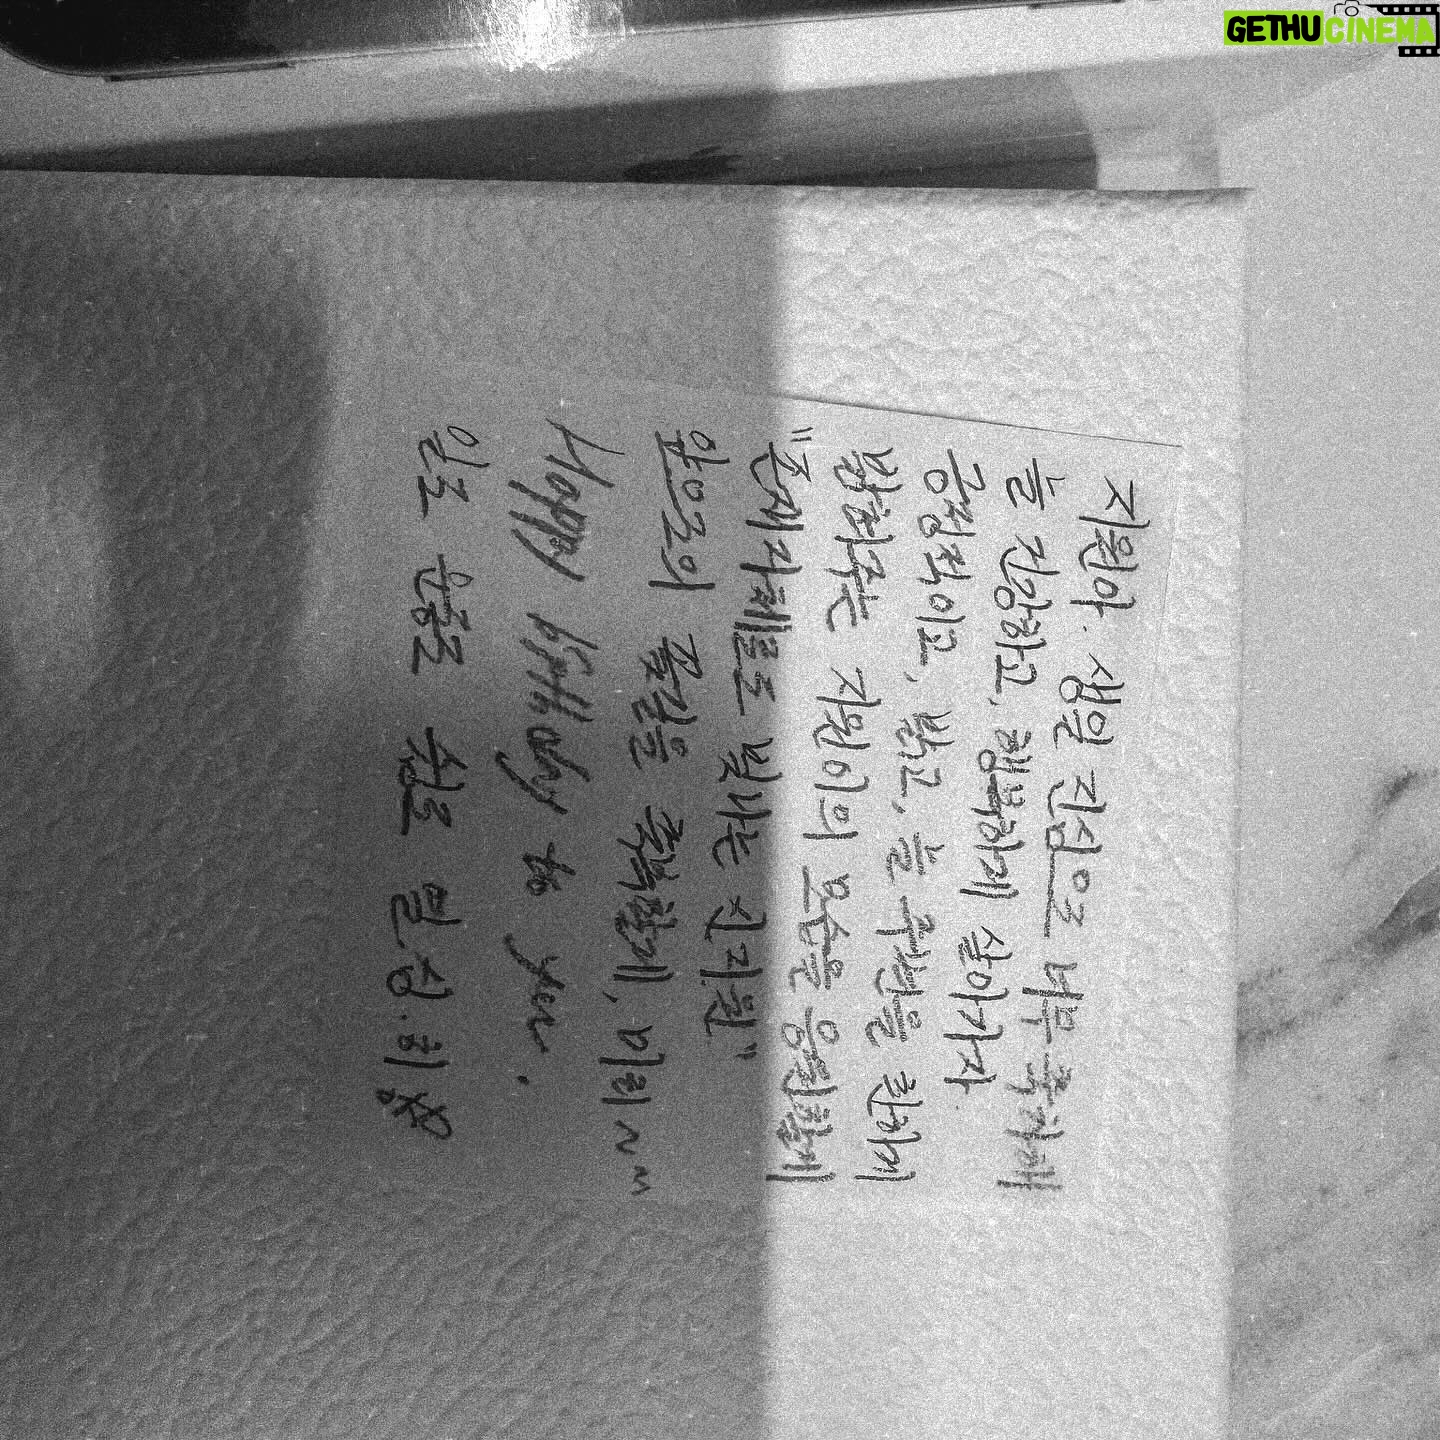 GETHUCINEMA
지원아. 생일 진심으로 너무 축하해
늘 건강하고, 행복하게 살아가자.
긍정적이고, 밝고, 늘 주변을 환하게
밝혀주는 지원이의 모습을 응원할게
"존재자체로도 빛나는 신지원"
앞으로의 꽃길을 축복할게, 미리~~
Happy birthday to you.